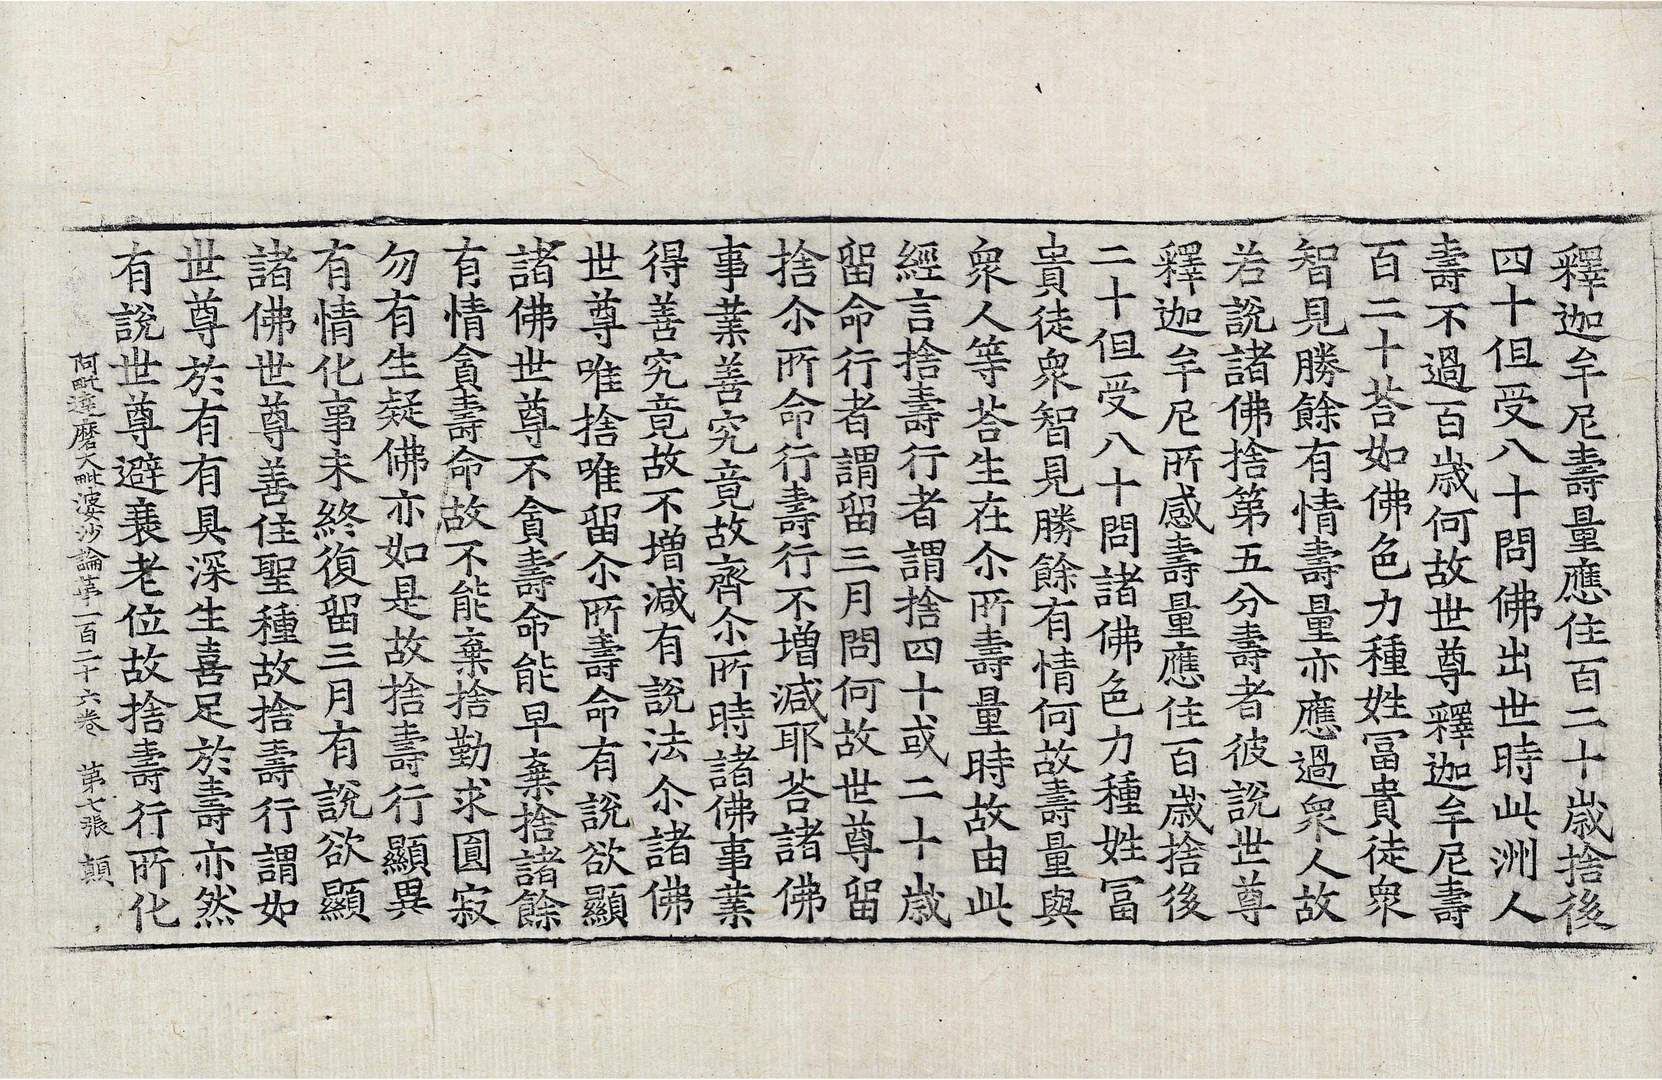 釋迦牟尼壽量應住百二十歲捨後
四十但受八十問佛出世時此洲人
壽不過百歲何故世尊釋迦牟尼壽
百二十荅如佛色力種姓冨貴徒衆
智見勝餘有情壽量亦應過衆人故
若說諸佛捨第五分壽者彼說世尊
釋迦牟尼所感壽量應住百歲捨後
二十但受八十問諸佛色力種姓冨
貴徒衆智見勝餘有情何故壽量與
衆人等荅生在尒所壽量時故由此
經言捨壽行者謂捨四十或二十歲
留命行者謂留三月問何故世尊留
捨尒所命行壽行不增減耶荅諸佛
事業善究竟故齊尒所時諸佛事業
得善究竟故不增減有說法尒諸佛
世尊唯捨唯留尒所壽命有說欲顯
諸佛世尊不貪壽命能早棄捨諸餘
有情貪壽命故不能棄捨勤求圓寂
勿有生疑佛亦如是故捨壽行顯異
有情化事未終復留三月有說欲顯
諸佛世尊善住聖種故捨壽行謂如
世尊於有有具深生喜足於壽亦然
有說世尊避衰老位故捨壽行所化
阿毗達磨大毗婆沙論第一百二十六卷 第七張 顛